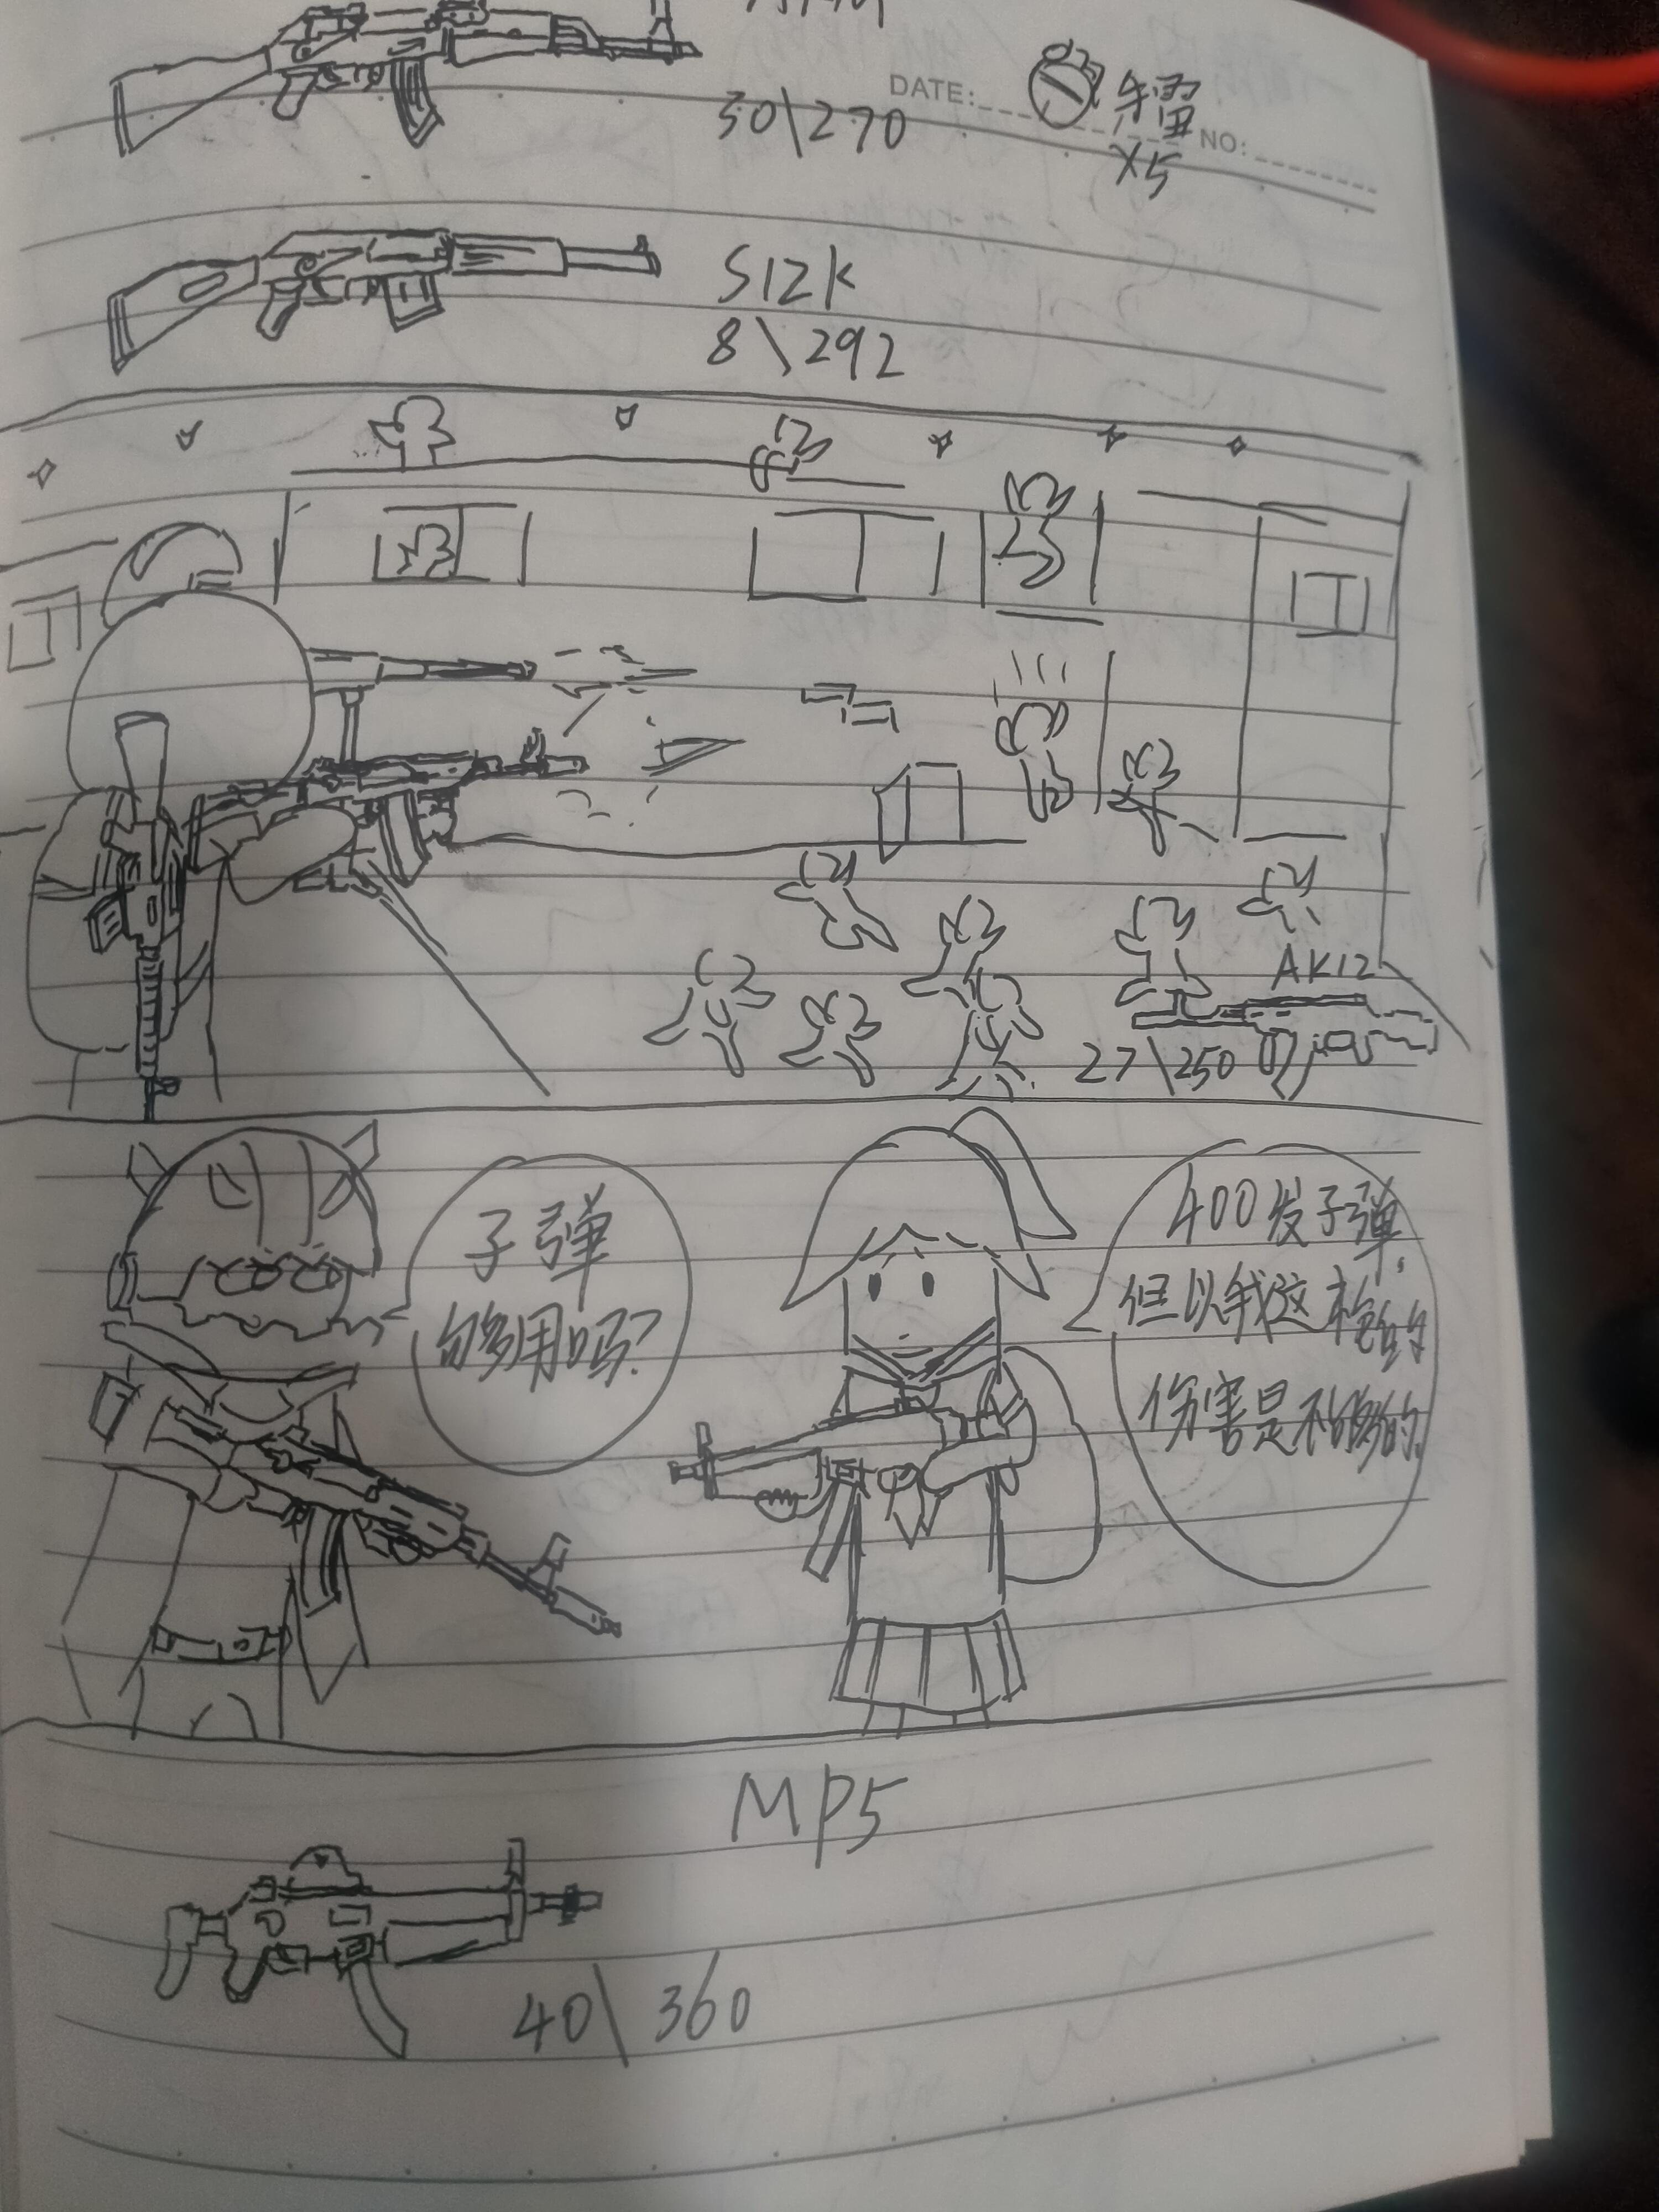 30\270
DATE:
NO:
X5
S12K
8\292
AK12
27\250
子弹
够用吗?
400发子弹.
但以我这枪的
伤害是不够的.
MP5
40\360